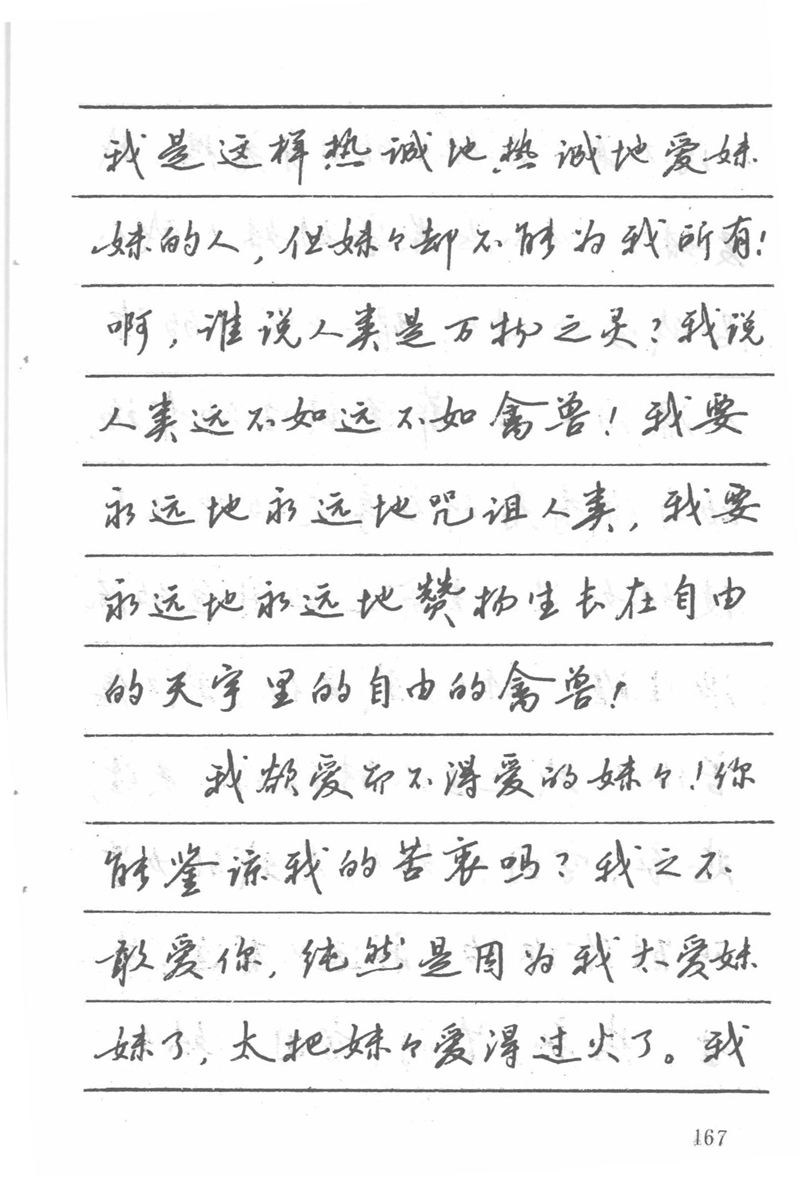 我是这样热诚地热诚地爱妹
妹的人，但妹々却不能为我所有！
啊，谁说人类是万物之灵？我说
人类远不如远不如禽兽！我要
永远地永远地咒诅人类，我要
永远地永远地赞扬生长在自由
的天宇里的自由的禽兽！
我欲爱而不得爱的妹々！你
能鉴谅我的苦衷吗？我之不
敢爱你，纯然是因为我太爱妹
妹了，太把妹々爱得过火了。我
167